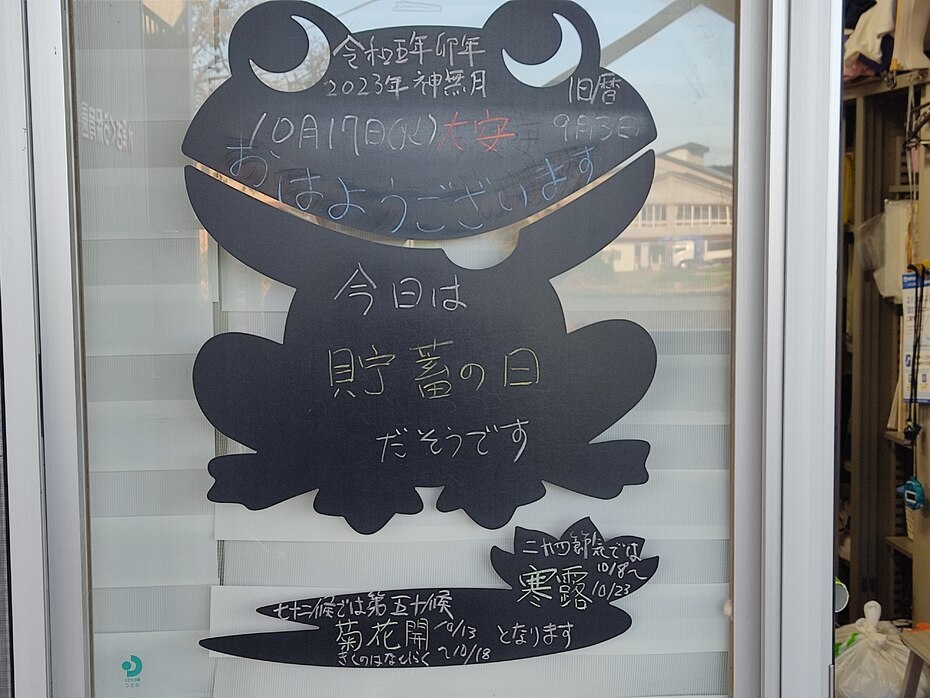 令和五年卯年
2023年神無月
旧暦
10月17日(火)大安 9月3日
おはようございます
今日は
貯蓄の日
だそうです
二十四節気では
寒露 10/8〜10/23
七十二候では第五十候
菊花開 10/13〜10/18 となります
きくのはなひらく